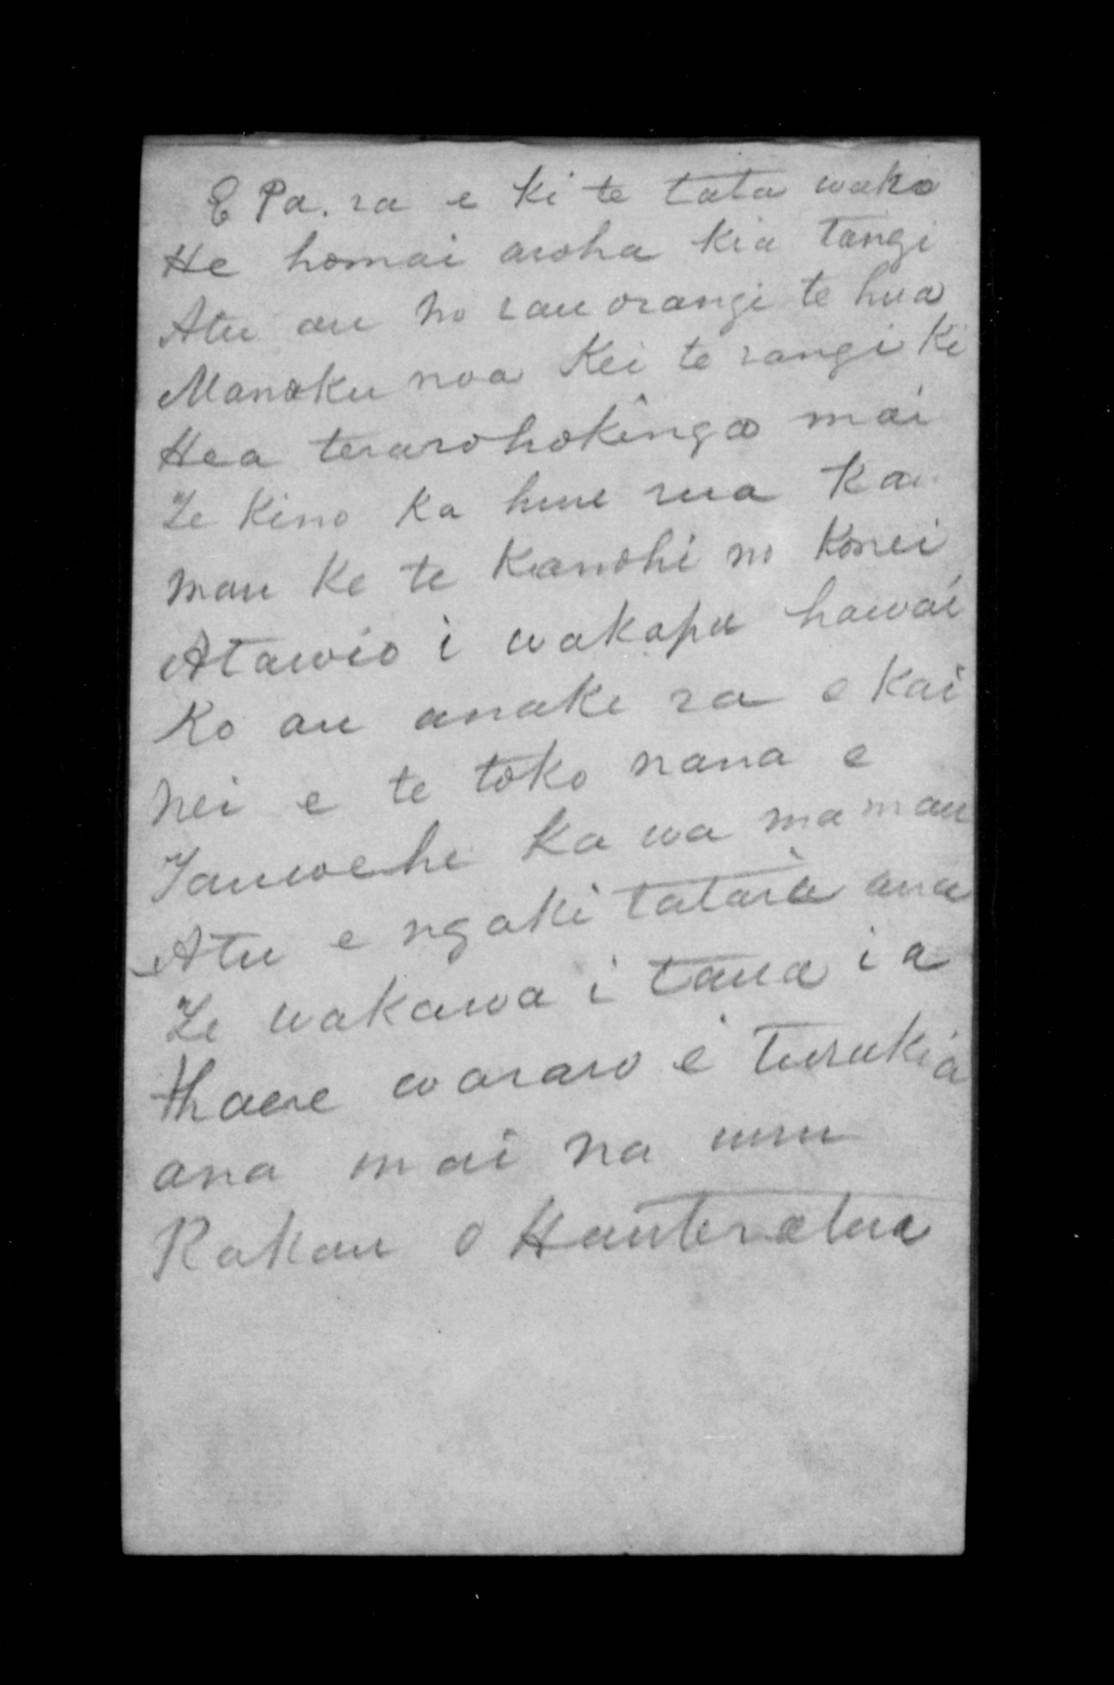 E Pa. ra e ki te tata wako
He homai aroha kia tangi
Atu au no rau orangi te hua
Manoku noa Kei te rangi ki
Hea terarohokinga mai
Te kino ka hue rua Kau
mau ke te Kanohi no Konei
Atawio i wakapu hawai
Ko au anake ra e kai
nei e te toko nana e
Tauwehe ka wa mamau
Atu e ngaki tatara ana
Te wakawa i taua i a
Haere wararo e turukia
ana mai na uru
Rakau o Hauteratua